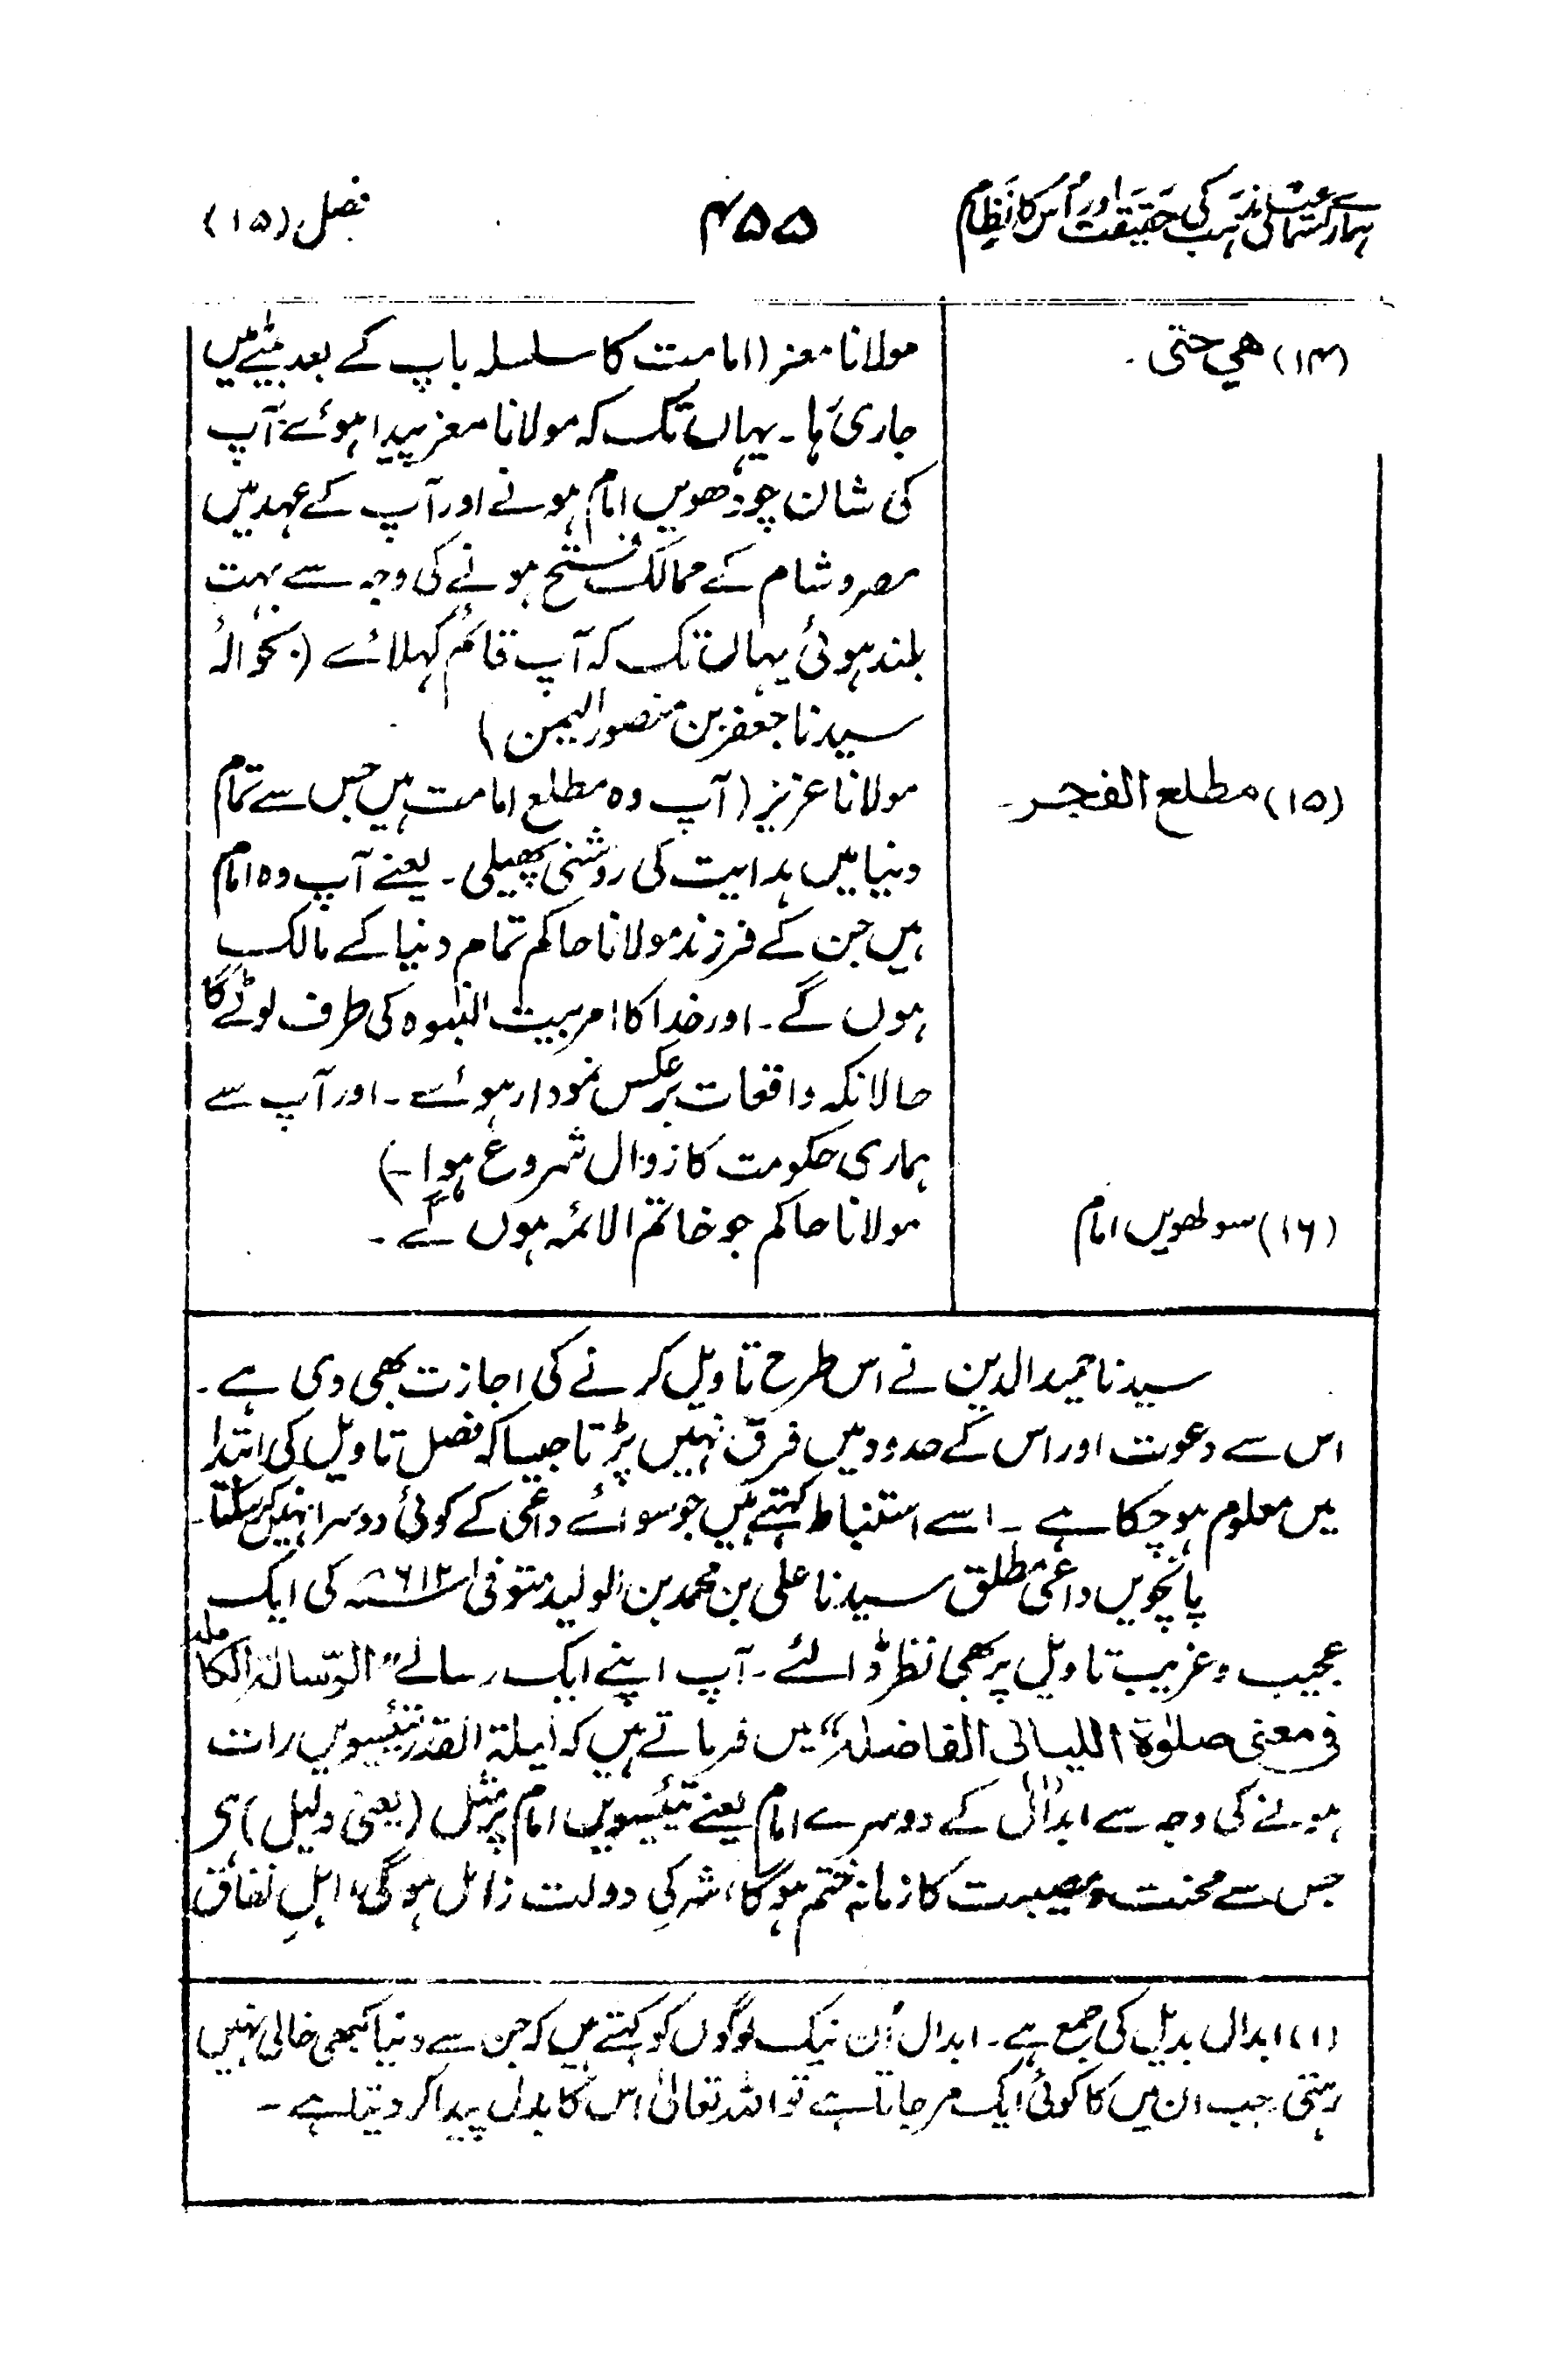 ہمارے اسماعیلی مذہب کی حقیقت اور اس کا نظام
۴۵۵
فصل (۱۵)
(۱۴) ھي حتی ۔
مولانا معز (امامت کا سلسلہ باپ کے بعد بیٹے میں
جاری رہا ۔ یہاں تک کہ مولانا معز پیدا ہوئے آپ
کی شان چودھویں امام ہونے اور آپ کے عہد میں
مصر و شام کے ممالک فتح ہونے کی وجہ سے بہت
بلند ہوئی یہاں تک کہ آپ قائم کہلائے (بحوالۂ
سیدنا جعفر بن منصور الیمن)
(۱۵) مطلع الفجر ۔
مولانا عزیز (آپ وہ مطلع امامت ہیں جس سے تمام
دنیا میں ہدایت کی روشنی پھیلی ۔ یعنے آپ وہ امام
ہیں جن کے فرزند مولانا حاکم تمام دنیا کے مالک
ہوں گے ۔ اور خدا کا امر بیت النبوہ کی طرف لوٹے گا
حالانکہ واقعات برعکس نمودار ہوئے ۔ اور آپ سے
ہماری حکومت کا زوال شروع ہوا ۔)
(۱۶) سولھویں امام
مولانا حاکم جو خاتم الائمہ ہوں گے ۔
سیدنا حمید الدین نے اس طرح تاویل کرنے کی اجازت بھی دی ہے ۔
اس سے دعوت اور اس کے حدود میں فرق نہیں پڑتا جیسا کہ فصل تاویل کی ابتدا
میں معلوم ہو چکا ہے ۔ اسے استنباط کہتے ہیں جو سوائے داعی کے کوئی دوسرا نہیں کر سکتا ۔
پانچویں داعی مطلق سیدنا علی بن محمد بن الولید متوفی ۶۱۲ھ کی ایک
عجیب و غریب تاویل پر بھی نظر ڈالئے ۔ آپ اپنے ایک رسالے "الرسالۃ الکاملہ
فی معنی صلوٰۃ اللیالی الفاضلہ" میں فرماتے ہیں کہ لیلۃ القدر تئیسویں رات
ہونے کی وجہ سے ابدال(۱) کے دوسرے امام یعنے تئیسویں امام پر مثل (یعنی دلیل) ہی
جس سے محنت و مصیبت کا زمانہ ختم ہوگا، شر کی دولت زائل ہوگی، اہلِ نفاق
(۱) ابدال بدیل کی جمع ہے ۔ ابدال اُن نیک لوگوں کو کہتے ہیں کہ جن سے دنیا کبھی خالی نہیں
رہتی جب ان میں کا کوئی ایک مر جاتا ہے تو اللہ تعالیٰ اس کا بدل پیدا کر دیتا ہے ۔